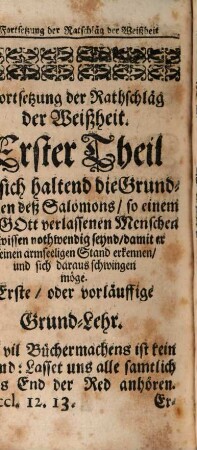 Fortsetzung der Rathschläg der Weißheit
ortsetzung der Rathschläg
der Weißheit.
Erster Theil
sich haltend die Grund-
en deß Salomons / so einem
GOtt verlassenen Menschen
wissen nothwendig seynd / damit er
einen armseeligen Stand erkennen /
und sich daraus schwingen
möge.
Erste / oder vorläuffige
Grund-Lehr.
vil Büchermachens ist kein
nd: Lasset uns alle samtlich
s End der Red anhören.
ccl. 12. 13.
Er-